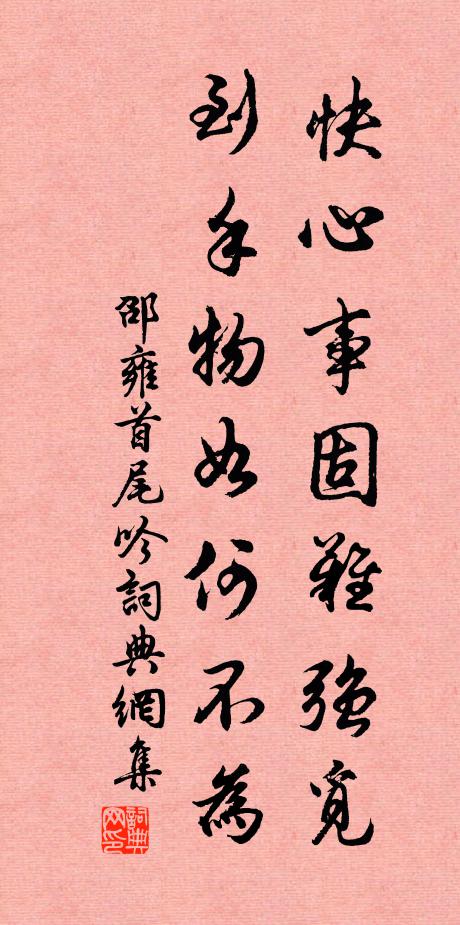 快心事固難強覓
到手物如何不為
邵雍首尾吟詞典網集
詞典網印